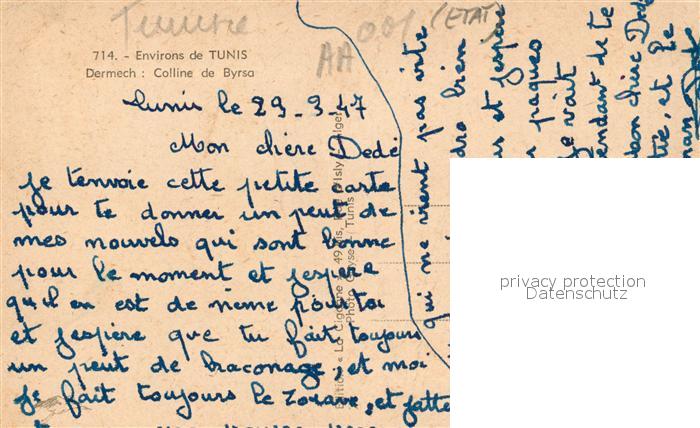 Tunisie
001 (ETAT)
AA
714. - Environs de TUNIS
Dermech : Colline de Byrsa
Tunis le 29-3-47
Mon chère Dedé
je tenvoie cette petite carte
pour te donner un peut de
mes nouvels qui sont bonne
pour le moment et jespère
qu'il en est de meme pour toi
et jespère que tu fait toujours
un peut de braconage, et moi
je fait toujours le zouave, et jatte
qui ne vient pas vite
bien
et jespère
paques
Je vait
endant de te
mon chère Dedé
et le
Editions « La Cigogne »
Tunis
privacy protection
Datenschutz